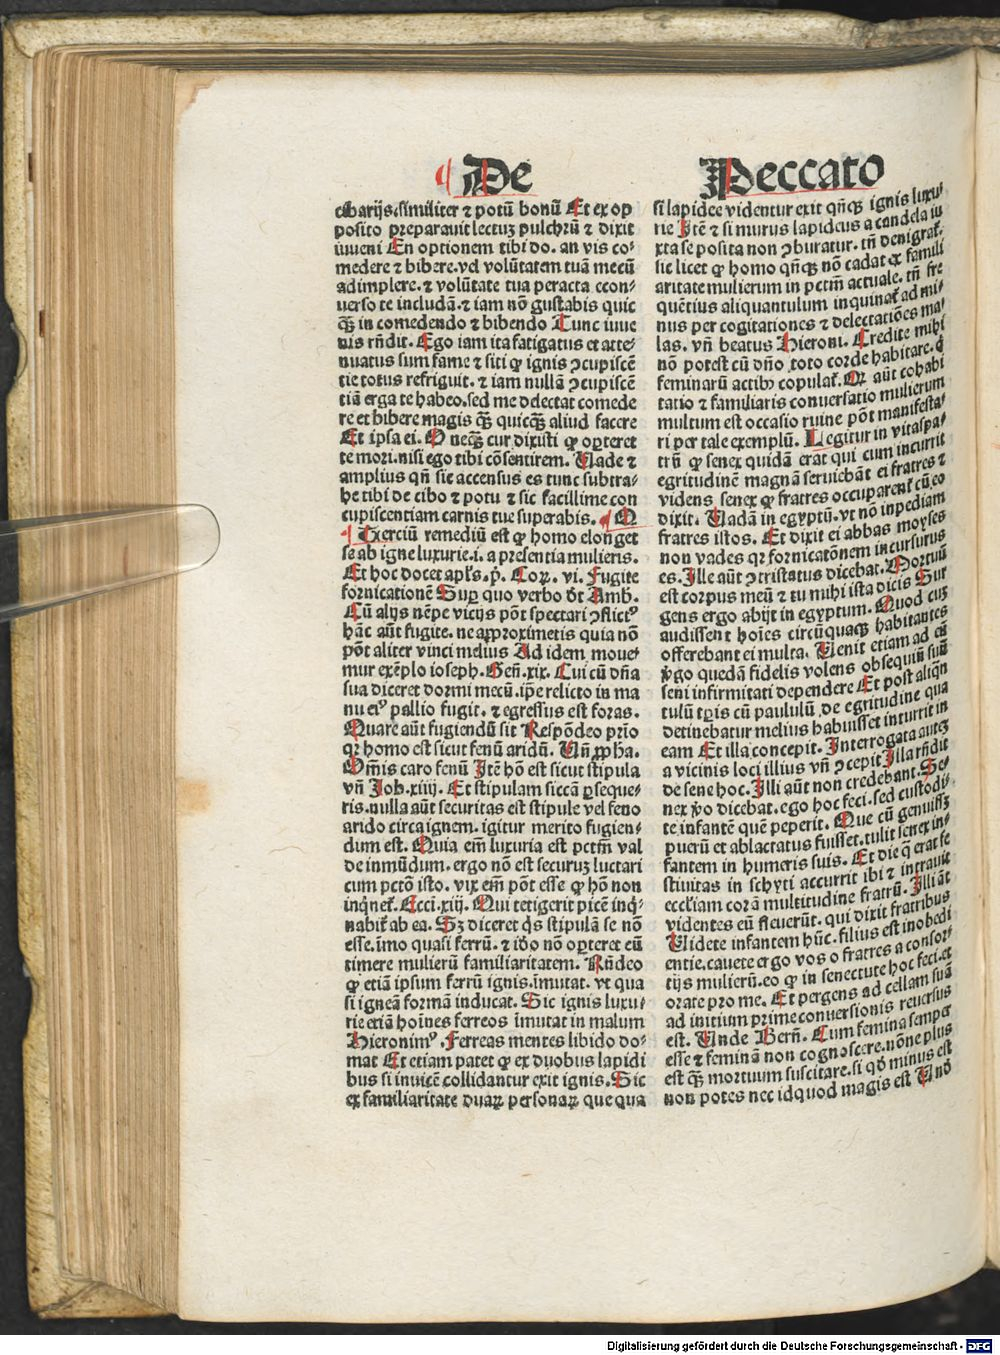 De Peccato
cibarijs. similiter ⁊ potū bonū Et ex op
posito preparauit lectuʒ pulchrū ⁊ dixit
iuueni En optionem tibi do. an vis co⸗
medere ⁊ bibere. vel volūtatem tuā mecū
adimplere. ⁊ volūtate tua peracta econ⸗
uerso te includā. ⁊ iam nō gustabis quic
q̄ȝ in comedendo ⁊ bibendo Tunc iuue
nis rn̄dit. Ego iam ita fatigatus et atte⸗
nuatus sum fame ⁊ siti ꝙ ignis ꝯcupiscē
tie totus refriguit. ⁊ iam nullā ꝯcupiscē
tiā erga te habeo. sed me delectat comede
re et bibere magis q̄ȝ quicq̄ȝ aliud facere
Et ipsa ei. O neq̄ȝ cur dixisti ꝙ oꝑteret
te mori. nisi ego tibi cōsentirem. Vade ⁊
amplius qn̄ sic accensus es tunc subtra⸗
he tibi de cibo ⁊ potu ⁊ sic facillime con
cupiscentiam carnis tue superabis. ¶ O
¶ Terciū remediū est ꝙ homo elonget
se ab igne luxurie. i. a presentia mulieris.
Et hoc docet apl's. p̄. Coꝝ. vi. Fugite
fornicationē Suꝑ quo verbo dt̄ Amb.
Cū alijs nēpe vicijs pōt spectari ꝯflictꝰ
hāc aūt fugite. ne approximetis quia nō
pōt aliter vinci melius Ad idem moue⸗
mur exēplo ioseph. Gen̄. xix. Cui cū dn̄a
sua diceret dormi mecū. ip̄e relicto in ma
nu eiꝰ pallio fugit. ⁊ egressus est foras.
Quare aūt fugiendū sit Respōdeo prio
qꝛ homo est sicut fenū aridū. Vn̄ ꝓpha.
Om̄is caro fenū Itē hō est sicut stipula
vn̄ Job. xiij. Et stipulam siccā ꝑseque⸗
ris. nulla aūt securitas est stipule vel feno
arido circa ignem. igitur merito fugien⸗
dum est. Quia em̄ luxuria est pctm̄ val
de inmūdum. ergo nō est securuʒ luctari
cum pctō isto. vix em̄ pōt esse ꝙ hō non
inqnet'. Ecci. xiij. Qui tetigerit picē inq⸗
nabit' ab ea. Sʒ diceret qs stipulā se nō
esse. īmo quasi ferrū. ⁊ iđo nō oꝑteret eū
timere mulierū familiaritatem. Rn̄deo
ꝙ etiā ipsum ferrū ignis. īmutat. vt qua
si igneā formā inducat. Sic ignis luxu⸗
rie etiā hoīnes ferreos īmutat in malum
Hieronimꝰ. Ferreas mentes libido do⸗
mat Et etiam patet ꝙ ex duobus lapidi
bus si inuicē collidantur exit ignis. Sic
ex familiaritate duaꝝ personaꝝ que qua
si lapidee videntur exit qn̄qȝ ignis luxu⸗
rie Itē ⁊ si murus lapideus a candela iu
xta se posita non ꝯburatur. tn̄ denigrat'.
sic licet ꝙ homo qn̄qȝ nō cadat ex famili
aritate mulierum in pctm̄ actuale. tn̄ fre
quētius aliquantulum inquinat' ad mi⸗
nus per cogitationes ⁊ delectatiōes ma⸗
las. vn̄ beatus Hieroni. Credite mihi
nō potest cū dn̄o toto corde habitare. q
feminarū actibꝰ copulat'. Qꝛ aūt cohabi
tatio ⁊ familiaris conuersatio mulierum
multum est occasio ruine pōt manifesta⸗
ri per tale exemplū. Legitur in vitaspa⸗
trū ꝙ senex quidā erat qui cum incurrit
egritudinē magnā seruiebāt ei fratres ⁊
videns senex ꝙ fratres occuparent' cū eo
dixit. Vadā in egyptū. vt nō inpediam
fratres istos. Et dixit ei abbas moyses
non vades qꝛ fornicatōnem incursurus
es. Ille aūt ꝯtristatus dicebat. Mortuū
est corpus meū ⁊ tu mihi ista dicis Sur
gens ergo abijt in egyptum. Quod cuʒ
audissent hoīes circūquaqȝ habitantes
offerebant ei multa. Venit etiam ad eū
v̊go quedā fidelis volens obsequiū suū
seni infirmitati dependere Et post aliqn̄
tulū tp̄is cū paululū de egritudine qua
detinebatur melius habuisset inturrit in
eam Et illa concepit. Interrogata auteʒ
a vicinis loci illius vn̄ ꝯcepit Illa rn̄dit
de sene hoc. Illi aūt non credebant. Se⸗
nex v̊o dicebat. ego hoc feci. sed custodi⸗
te infantē quē peperit. Que cū genuissʒ
puerū et ablacratus fuisset. tulit senex in⸗
fantem in humeris suis. Et die q̄ erat fe
stiuitas in schyti accurrit ibi ⁊ intrauit
eccl'iam corā multitudine fratrū. Illi aūt
videntes eū fleuerūt. qui dixit fratribus
Videte infantem hūc. filius est inobedi
entie. cauete ergo vos o fratres a consor⸗
tijs mulierū. eo ꝙ in senectute hoc feci. et
orate pro me. Et pergens ad cellam suā
ad initium prime conuersionis reuersus
est. Unde Bern̄. Cum femina semper
esse ⁊ feminā non cognoscere. nōne plus
est q̄ȝ mortuum suscitare. si qđ minus est
non potes nec id quod magis est Vnđ
Digitalisierung gefördert durch die Deutsche Forschungsgemeinschaft - DFG